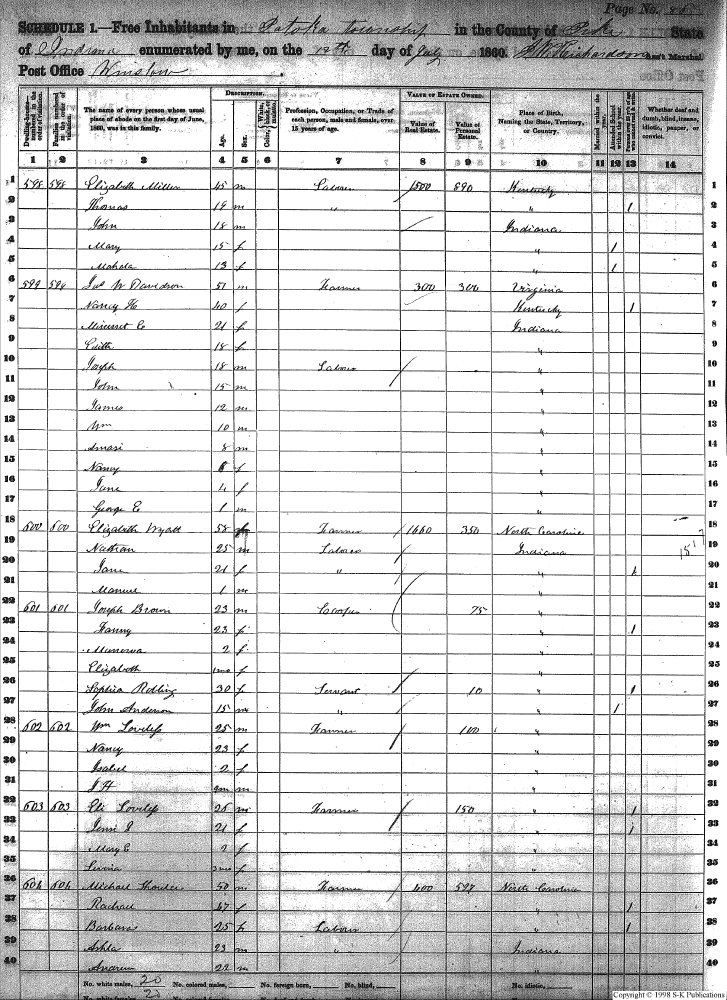 Page No. 80
SCHEDULE 1.—Free Inhabitants in Patoka township in the County of Pike State
of Indiana enumerated by me, on the 12th day of July 1860. Ass't Marshal
Post Office Winslow
Dwelling-houses—numbered in the order of visitation.
Families numbered in the order of visitation.
The name of every person whose usual place of abode on the first day of June, 1860, was in this family.
DESCRIPTION.
Age.
Sex.
Color, White, black, or mulatto.
Profession, Occupation, or Trade of each person, male and female, over 15 years of age.
VALUE OF ESTATE OWNED.
Value of Real Estate.
Value of Personal Estate.
Place of Birth, Naming the State, Territory, or Country.
Married within the year.
Attended School within the year.
Persons over 20 y'rs of age who cannot read & write.
Whether deaf and dumb, blind, insane, idiotic, pauper, or convict.
1 2 3 4 5 6 7 8 9 10 11 12 13 14
1 598 598 Elizabeth Miller 45 m Laborer 1500 890 Kentucky 1
2 Thomas 19 m " " 1 2
3 John 18 m Indiana 3
4 Mary 15 f " 1 4
5 Mahala 13 f " 1 5
6 599 599 Jas W Davidson 51 m Farmer 300 300 Virginia 6
7 Nancy H 40 f Kentucky 1 7
8 21 f Indiana 8
9 Edith 18 f " 9
10 Joseph 18 m Laborer " 10
11 John 15 m " 11
12 James 12 m " 12
13 Wm 10 m " 13
14 8 m " 14
15 Nancy 6 f " 15
16 Jane 4 f " 16
17 George E 1 m " 17
18 600 600 Elizabeth Wyatt 58 f Farmer 1660 350 North Carolina 18
19 Nathan 25 m Laborer Indiana 19
20 Jane 21 f " " 1 20
21 1 m " 21
22 601 601 Joseph Brown 23 m Cooper 75 " 22
23 Fanny 23 f " 1 23
24 2 f " 24
25 Elizabeth f " 25
26 Sophia 30 f Servant 10 " 1 26
27 John Anderson 15 m " " 1 27
28 602 602 Wm Loveless 25 m Farmer 100 " 28
29 Nancy 23 f " 29
30 Isabel 2 f " 30
31 m " 31
32 603 603 Eli Loveless 26 m Farmer 150 " 1 32
33 21 f " 1 33
34 Mary E 2 f " 34
35 f " 35
36 604 604 Michael 50 m Farmer 400 597 North Carolina 36
37 Rachael 47 f " 1 37
38 Barbara 25 f Laborer " 1 38
39 23 m " Indiana 39
40 Andrew 22 m " 40
No. white males, 20 No. colored males, No. foreign born, No. blind, No. idiotic,
Copyright © 1998 S-K Publications